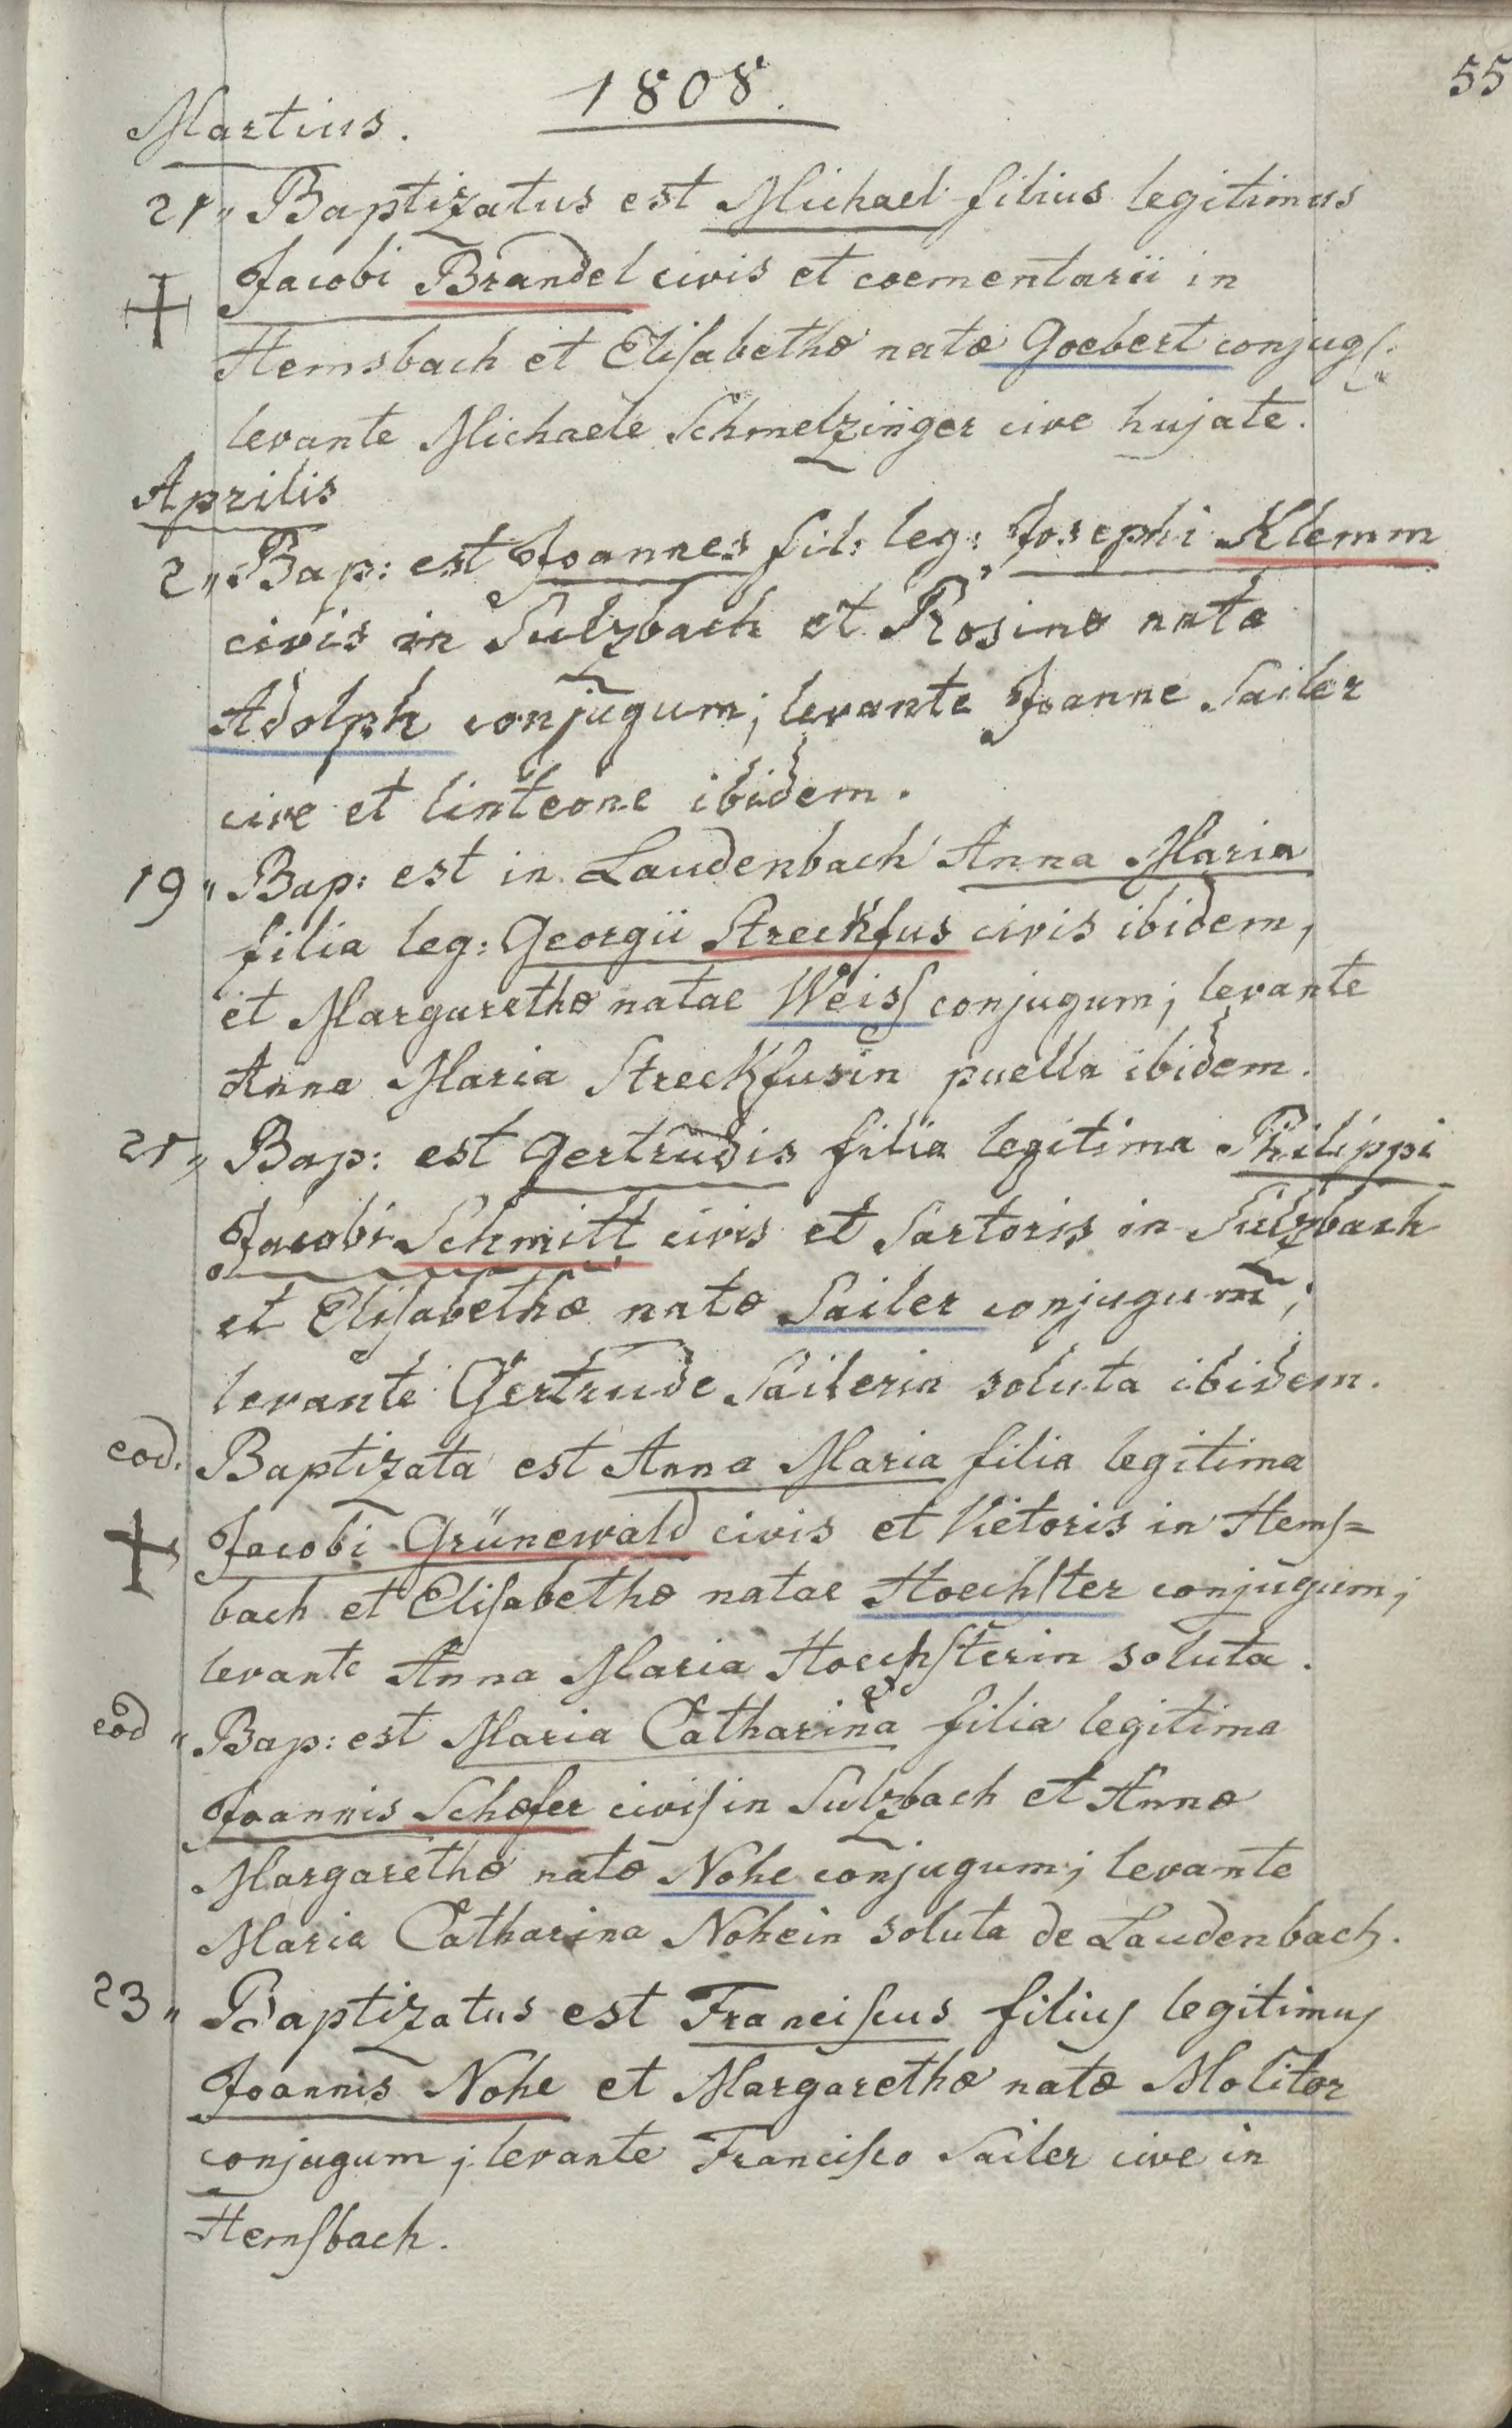 1808.
55
Martius.
21„ Baptizatus est Michael filius legitimus
Jacobi Brandel civis et coementarii in
Hemsbach et Eliſabethæ natæ Goebert conjugſ:
levante Michaele Schmelzinger cive hujate.
Aprilis
2„ Bap: est Joannes fil: leg: Josephi Klemm
civis in Sulzbach et Rosinæ natæ
Adolph conjugum; levante Joanne Sailer
cive et linteone ibidem.
19„ Bap: est in Laudenbach Anna Maria
filia leg: Georgii Streckfus civis ibidem,
et Margarethæ natae Weisſ conjugum; levante
Anna Maria Streckfusin puella ibidem.
21„ Bap: est Gertrudis filia legitima Philippi
Jacobi Schmitt civis et Sartoris in Sulzbach
et Eliſabethæ natæ Sailer conjugum;
levante Gertrude Sailerin soluta ibidem.
eod. Baptizata est Anna Maria filia legitima
Jacobi Grünewald civis et Vietoris in Hemſ=
bach et Eliſabethæ natae Hoechſter conjugum;
levante Anna Maria Hoechſterin soluta.
eod „ Bap: est Maria Catharina filia legitima
Joannis Schæfer civiſ in Sulzbach et Annæ
Margarethæ natæ Nohe conjugum; levante
Maria Catharina Nohein soluta de Laudenbach.
23„ Baptizatus est Franciſcus filiuſ legitimuſ
Joannis Nohe et Margarethæ natæ Molitor
conjugum; levante Franciſco Sailer cive in
Hemſbach.